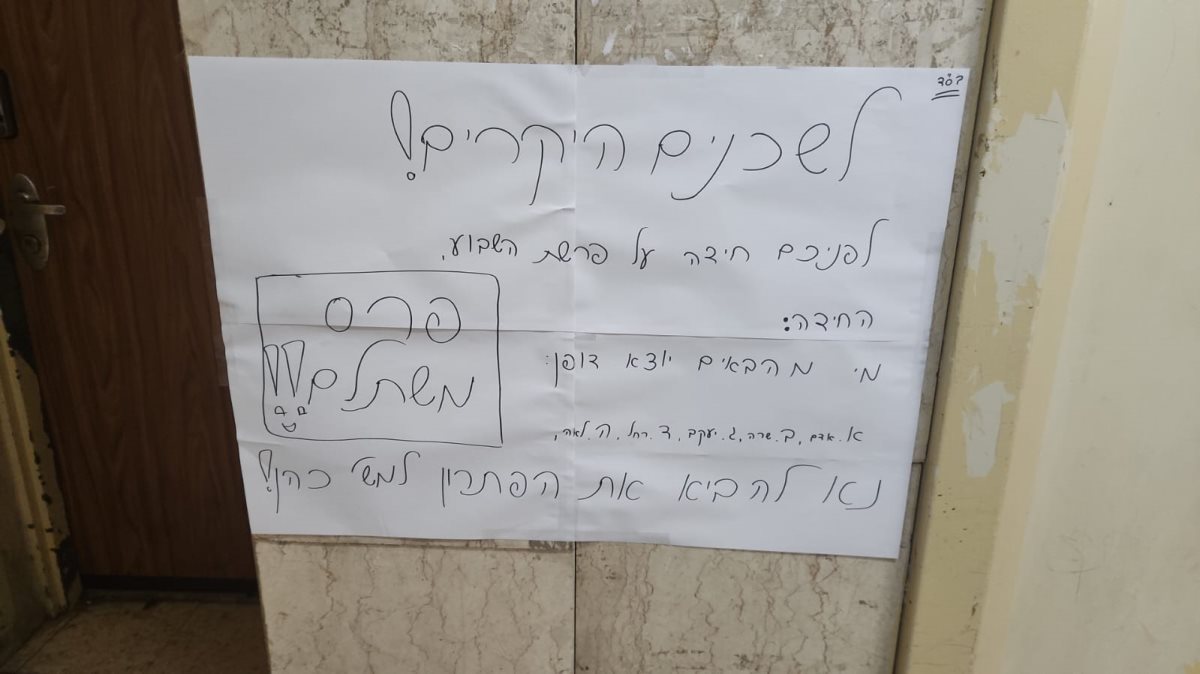 בס"ד
לשכנים היקרים!
לפניכם חידה על פרשת השבוע.
החידה:
מי מהבאים יוצא דופן:
א. אדם, ב. שרה, ג. יעקב, ד. רחל, ה. לאה,
פרס
משתלם!!
נא להביא את הפתרון למש' כהן!